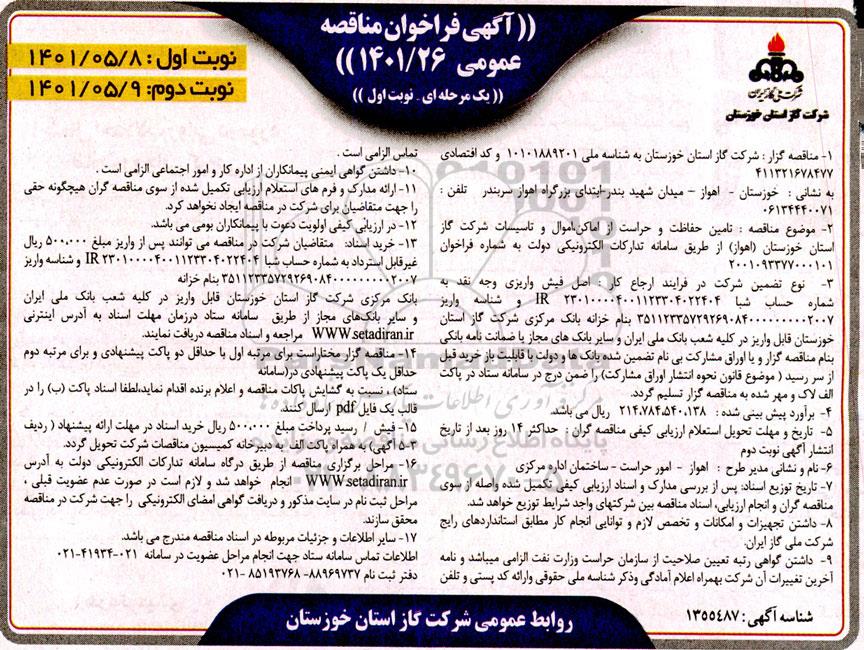 (( آگهی فراخوان مناقصه
عمومی ۱۴۰۱/۲۶ ))
(( یک مرحله ای - نوبت اول ))
نوبت اول : ۱۴۰۱/۰۵/۸
نوبت دوم: ۱۴۰۱/۰۵/۹
شرکت ملی گاز ایران
شرکت گاز استان خوزستان
۱- مناقصه گزار : شرکت گاز استان خوزستان به شناسه ملی ۱۰۱۰۱۸۸۹۲۰۱ و کد اقتصادی
۴۱۱۳۲۱۶۷۸۴۷۷
به نشانی : خوزستان - اهواز – میدان شهید بندر-ابتدای بزرگراه اهواز سربندر تلفن :
۰۶۱۳۴۴۴۰۰۷۱
۲- موضوع مناقصه : تامین حفاظت و حراست از اماکن،اموال و تاسیسات شرکت گاز
استان خوزستان (اهواز) از طریق سامانه تدارکات الکترونیکی دولت به شماره فراخوان
۲۰۰۱۰۹۳۳۷۷۰۰۰۱۰۱
۳- نوع تضمین شرکت در فرایند ارجاع کار : اصل فیش واریزی وجه نقد به
شماره حساب شبا IR ۲۳۰۱۰۰۰۰۴۰۰۱۱۲۳۳۰۴۰۲۲۴۰۴ و شناسه واریز
۳۵۱۱۲۳۳۵۷۲۹۲۶۹۰۸۴۰۰۰۰۰۰۰۰۰۰۲۰۰۷ بنام خزانه بانک مرکزی شرکت گاز استان
خوزستان قابل واریز در کلیه شعب بانک ملی ایران و سایر بانک های مجاز یا ضمانت نامه بانکی
بنام مناقصه گزار و یا اوراق مشارکت بی نام تضمین شده بانک ها و دولت با قابلیت باز خرید قبل
از سر رسید ( موضوع قانون نحوه انتشار اوراق مشارکت) را ضمن درج در سامانه ستاد در پاکت
الف لاک و مهر شده به مناقصه گزار تسلیم گردد.
۴- برآورد پیش بینی شده : ۲۱۴،۷۸۴،۵۴۰،۱۳۸ ریال می باشد.
۵- تاریخ و مهلت تحویل استعلام ارزیابی کیفی مناقصه گران : حداکثر ۱۴ روز بعد از تاریخ
انتشار آگهی نوبت دوم
۶-نام و نشانی مدیر طرح : اهواز - امور حراست - ساختمان اداره مرکزی
۷- تاریخ توزیع اسناد: پس از بررسی مدارک و اسناد ارزیابی کیفی تکمیل شده واصله از سوی
مناقصه گران و انجام ارزیابی، اسناد مناقصه بین شرکتهای واجد شرایط توزیع خواهد شد.
۸- داشتن تجهیزات و امکانات و تخصص لازم و توانایی انجام کار مطابق استانداردهای رایج
شرکت ملی گاز ایران.
۹- داشتن گواهی رتبه تعیین صلاحیت از سازمان حراست وزارت نفت الزامی میباشد و نامه
آخرین تغییرات آن شرکت بهمراه اعلام آمادگی وذکر شناسه ملی حقوقی وارائه کد پستی و تلفن
تماس الزامی است .
۱۰- داشتن گواهی ایمنی پیمانکاران از اداره کار و امور اجتماعی الزامی است .
۱۱- ارائه مدارک و فرم های استعلام ارزیابی تکمیل شده از سوی مناقصه گران هیچگونه حقی
را جهت متقاضیان برای شرکت در مناقصه ایجاد نخواهد کرد.
۱۲- در ارزیابی کیفی اولویت دعوت با پیمانکاران بومی می باشد.
۱۳- خرید اسناد: متقاضیان شرکت در مناقصه می توانند پس از واریز مبلغ ۵۰۰،۰۰۰ ریال
غیرقابل استرداد به شماره حساب شبا IR ۲۳۰۱۰۰۰۰۴۰۰۱۱۲۳۳۰۴۰۲۲۴۰۴ و شناسه واریز
۳۵۱۱۲۳۳۵۷۲۹۲۶۹۰۸۴۰۰۰۰۰۰۰۰۰۰۲۰۰۷ بنام خزانه
بانک مرکزی شرکت گاز استان خوزستان قابل واریز در کلیه شعب بانک ملی ایران
و سایر بانک‌های مجاز از طریق سامانه ستاد درزمان مهلت اسناد به آدرس اینترنتی
WWW.setadiran.ir مراجعه و اسناد مناقصه دریافت نمایند.
۱۴- مناقصه گزار مختاراست برای مرتبه اول با حداقل دو پاکت پیشنهادی و برای مرتبه دوم
حداقل یک پاکت پیشنهادی در(سامانه
ستاد) ، نسبت به گشایش پاکات مناقصه و اعلام برنده اقدام نماید،لطفا اسناد پاکت (ب) را در
قالب یک فایل pdf ارسال کنند.
۱۵- فیش / رسید پرداخت مبلغ ۵۰۰،۰۰۰ ریال خرید اسناد در مهلت ارائه پیشنهاد ( ردیف
۳-۵ آگهی) به همراه پاکت الف به دبیرخانه کمیسیون مناقصات شرکت تحویل گردد.
۱۶- مراحل برگزاری مناقصه از طریق درگاه سامانه تدارکات الکترونیکی دولت به آدرس
WWW.setadiran.ir انجام خواهد شد و لازم است در صورت عدم عضویت قبلی ،
مراحل ثبت نام در سایت مذکور و دریافت گواهی امضای الکترونیکی را جهت شرکت در مناقصه
محقق سازند.
۱۷- سایر اطلاعات و جزئیات مربوطه در اسناد مناقصه مندرج می باشد.
اطلاعات تماس سامانه ستاد جهت انجام مراحل عضویت در سامانه ۰۲۱-۴۱۹۳۴-۰۲۱
دفتر ثبت نام ۸۸۹۶۹۷۳۷- ۸۵۱۹۳۷۶۸-۰۲۱
شناسه آگهی: ۱۳۵۵۴۸۷
روابط عمومی شرکت گاز استان خوزستان